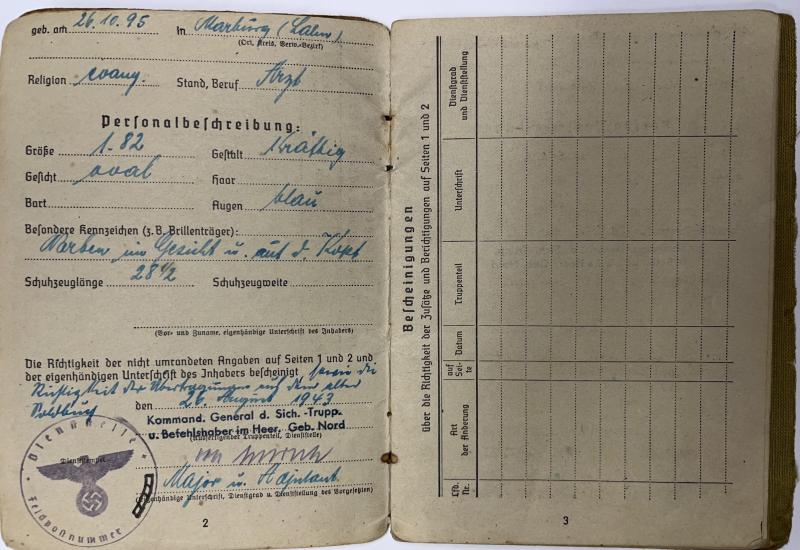 geb. am 26.10.95 in Marburg (Lahn)
(Ort, Kreis, Verw.-Bezirk)
Religion evang. Stand, Beruf Arzt
Personalbeschreibung:
Größe 1.82 Gestalt kräftig
Gesicht oval Haar
Bart Augen blau
Besondere Kennzeichen (z.B. Brillenträger):
Narben im Gesicht u. auf d. Kopf
Schuhzeuglänge 28 1/2 Schuhzeugweite
(Vor- und Zuname, eigenhändige Unterschrift des Inhabers)
Die Richtigkeit der nicht umrandeten Angaben auf Seiten 1 und 2 und
der eigenhändigen Unterschrift des Inhabers bescheinigt sowie die
Richtigkeit der Übertragungen aus dem alten
Soldbuch den 26. August 1943
Kommand. General d. Sich.-Trupp.
u. Befehlshaber im Heer. Geb. Nord
(Ausfertigender Truppenteil, Dienststelle)
Dienststempel
Dienststelle
Feldpostnummer
Major u. Adjutant
(Eigenhändige Unterschrift, Dienstgrad u. Dienststellung des Vorgesetzten)
2
Bescheinigungen
über die Richtigkeit der Zusätze und Berichtigungen auf Seiten 1 und 2
Lfd. Nr.
Art der Änderung
auf Seite
Datum
Truppenteil
Unterschrift
Dienstgrad und Dienststellung
3